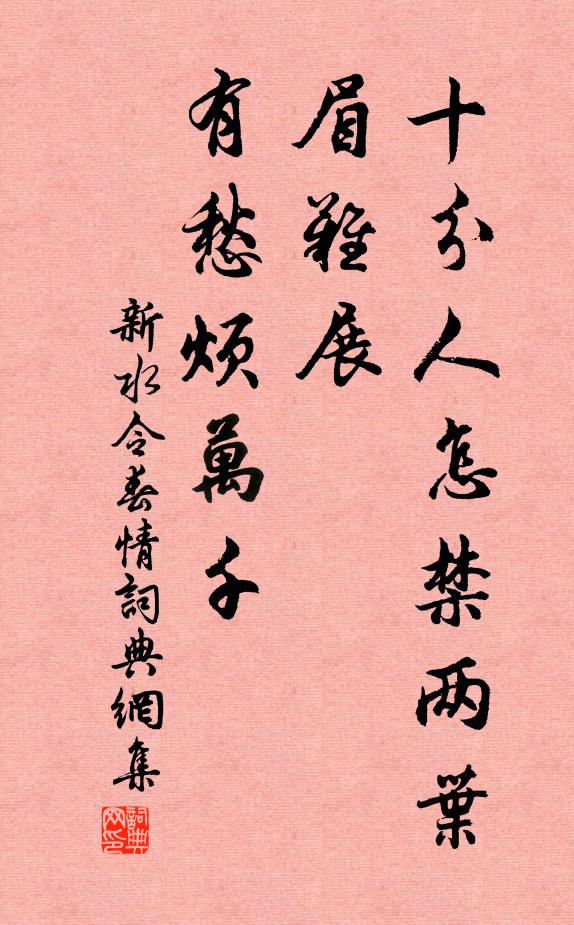 十分人怎禁两葉
眉難展
有愁煩萬千
新水令春情詞典網集
詞典网印